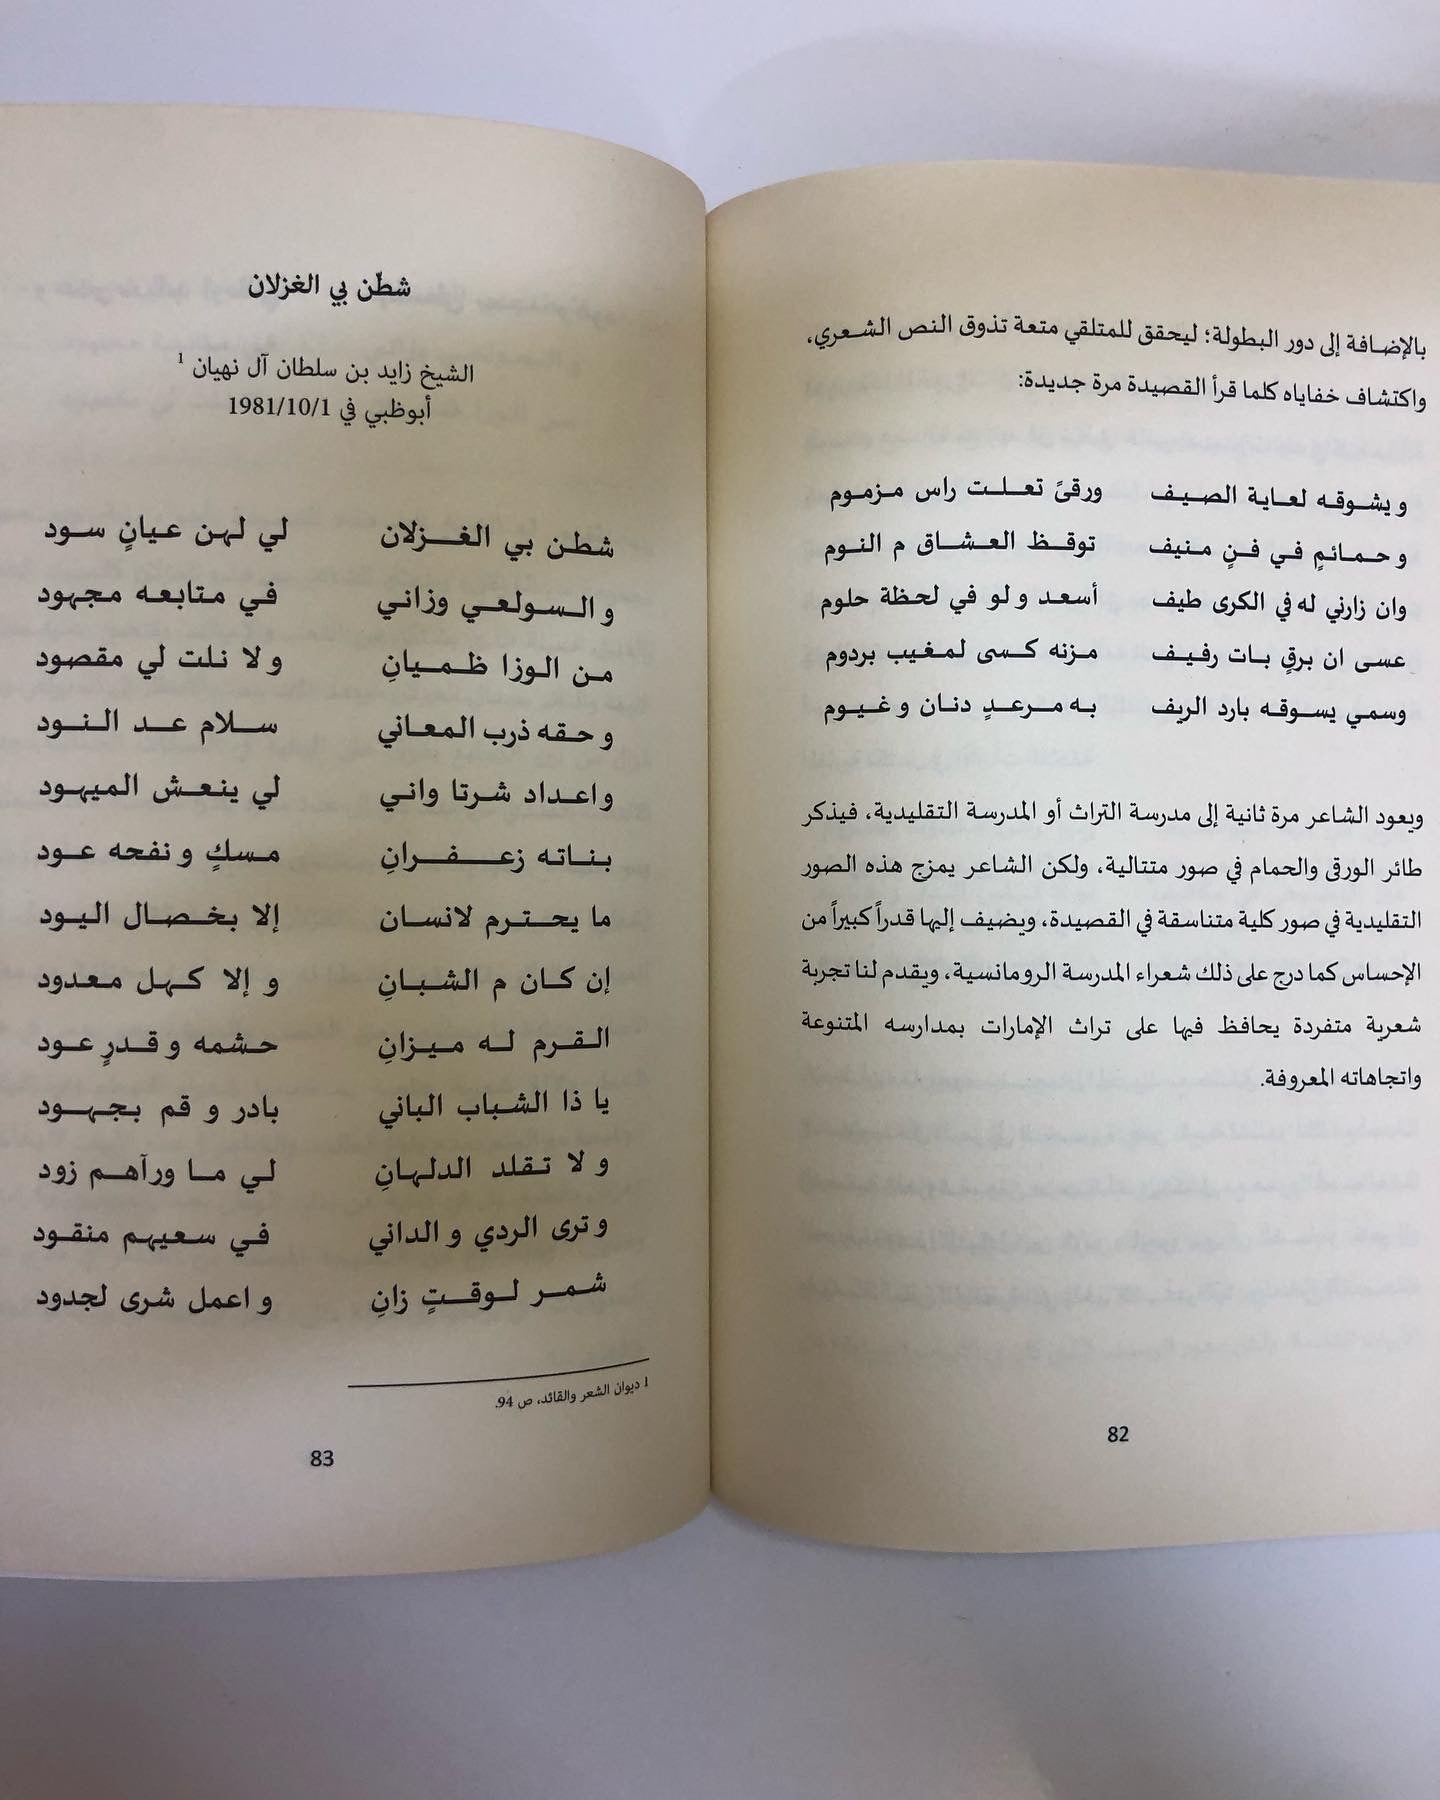 بالإضافة إلى دور البطولة؛ ليحقق للمتلقي متعة تذوق النص الشعري،
واكتشاف خفاياه كلما قرأ القصيدة مرة جديدة:
و يشوقه لعاية الصيف ورقىً تعلت راس مزموم
و حمائمٍ في فنٍ منيف توقظ العشاق م النوم
وان زارني له في الكرى طيف أسعد و لو في لحظة حلوم
عسى ان برقٍ بات رفيف مزنه كسى لمغيب بردوم
وسمي يسوقه بارد الريف به مرعدٍ دنان و غيوم
ويعود الشاعر مرة ثانية إلى مدرسة التراث أو المدرسة التقليدية، فيذكر
طائر الورقى والحمام في صور متتالية، ولكن الشاعر يمزج هذه الصور
التقليدية في صور كلية متناسقة في القصيدة، ويضيف إليها قدراً كبيراً من
الإحساس كما درج على ذلك شعراء المدرسة الرومانسية، ويقدم لنا تجربة
شعرية متفردة يحافظ فيها على تراث الإمارات بمدارسه المتنوعة
واتجاهاته المعروفة.
82
شطّن بي الغزلان
الشيخ زايد بن سلطان آل نهيان 1
أبوظبي في 1981/10/1
شطن بي الغزلان لي لهن عيانٍ سود
و السولعي وزاني في متابعه مجهود
من الوزا ظميانِ و لا نلت لي مقصود
و حقه ذرب المعاني سلام عد النود
و اعداد شرتا واني لي ينعش الميهود
بناته زعفرانِ مسكٍ و نفحه عود
ما يحترم لانسان إلا بخصال اليود
إن كان م الشبانِ و إلا كهل معدود
القرم له ميزانِ حشمه و قدرٍ عود
يا ذا الشباب الباني بادر و قم بجهود
و لا تقلد الدلهانِ لي ما ورآهم زود
و ترى الردي و الداني في سعيهم منقود
شمر لوقتٍ زانِ و اعمل شرى لجدود
1 ديوان الشعر والقائد، ص 94.
83